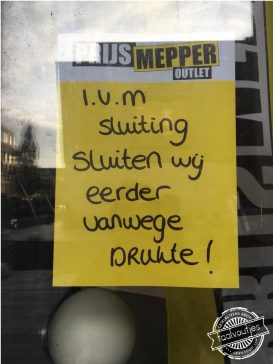 PRIJS MEPPER
OUTLET
I.V.M
sluiting
Sluiten wij
eerder
vanwege
DRUKTE!
taalvoutjes